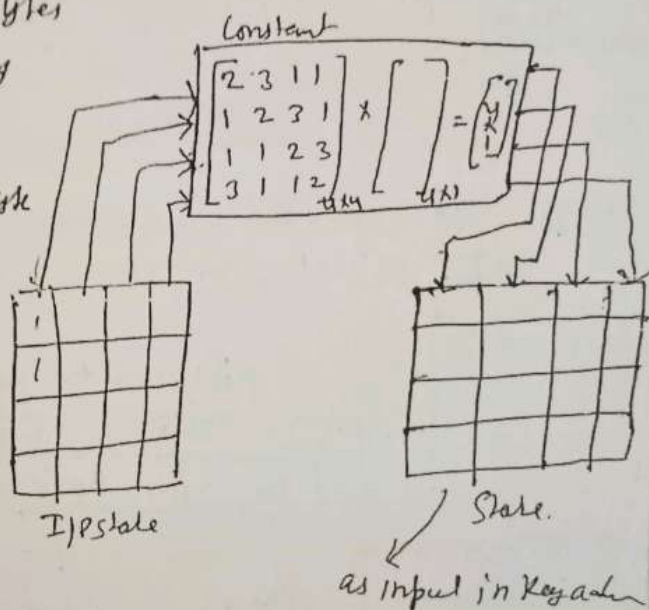 ytes
Constant
2 3 1 1
1 2 3 1
1 1 2 3
3 1 1 2
4x4
x
4x1
=
4x1
1
1
I/P State
State.
as input in Key